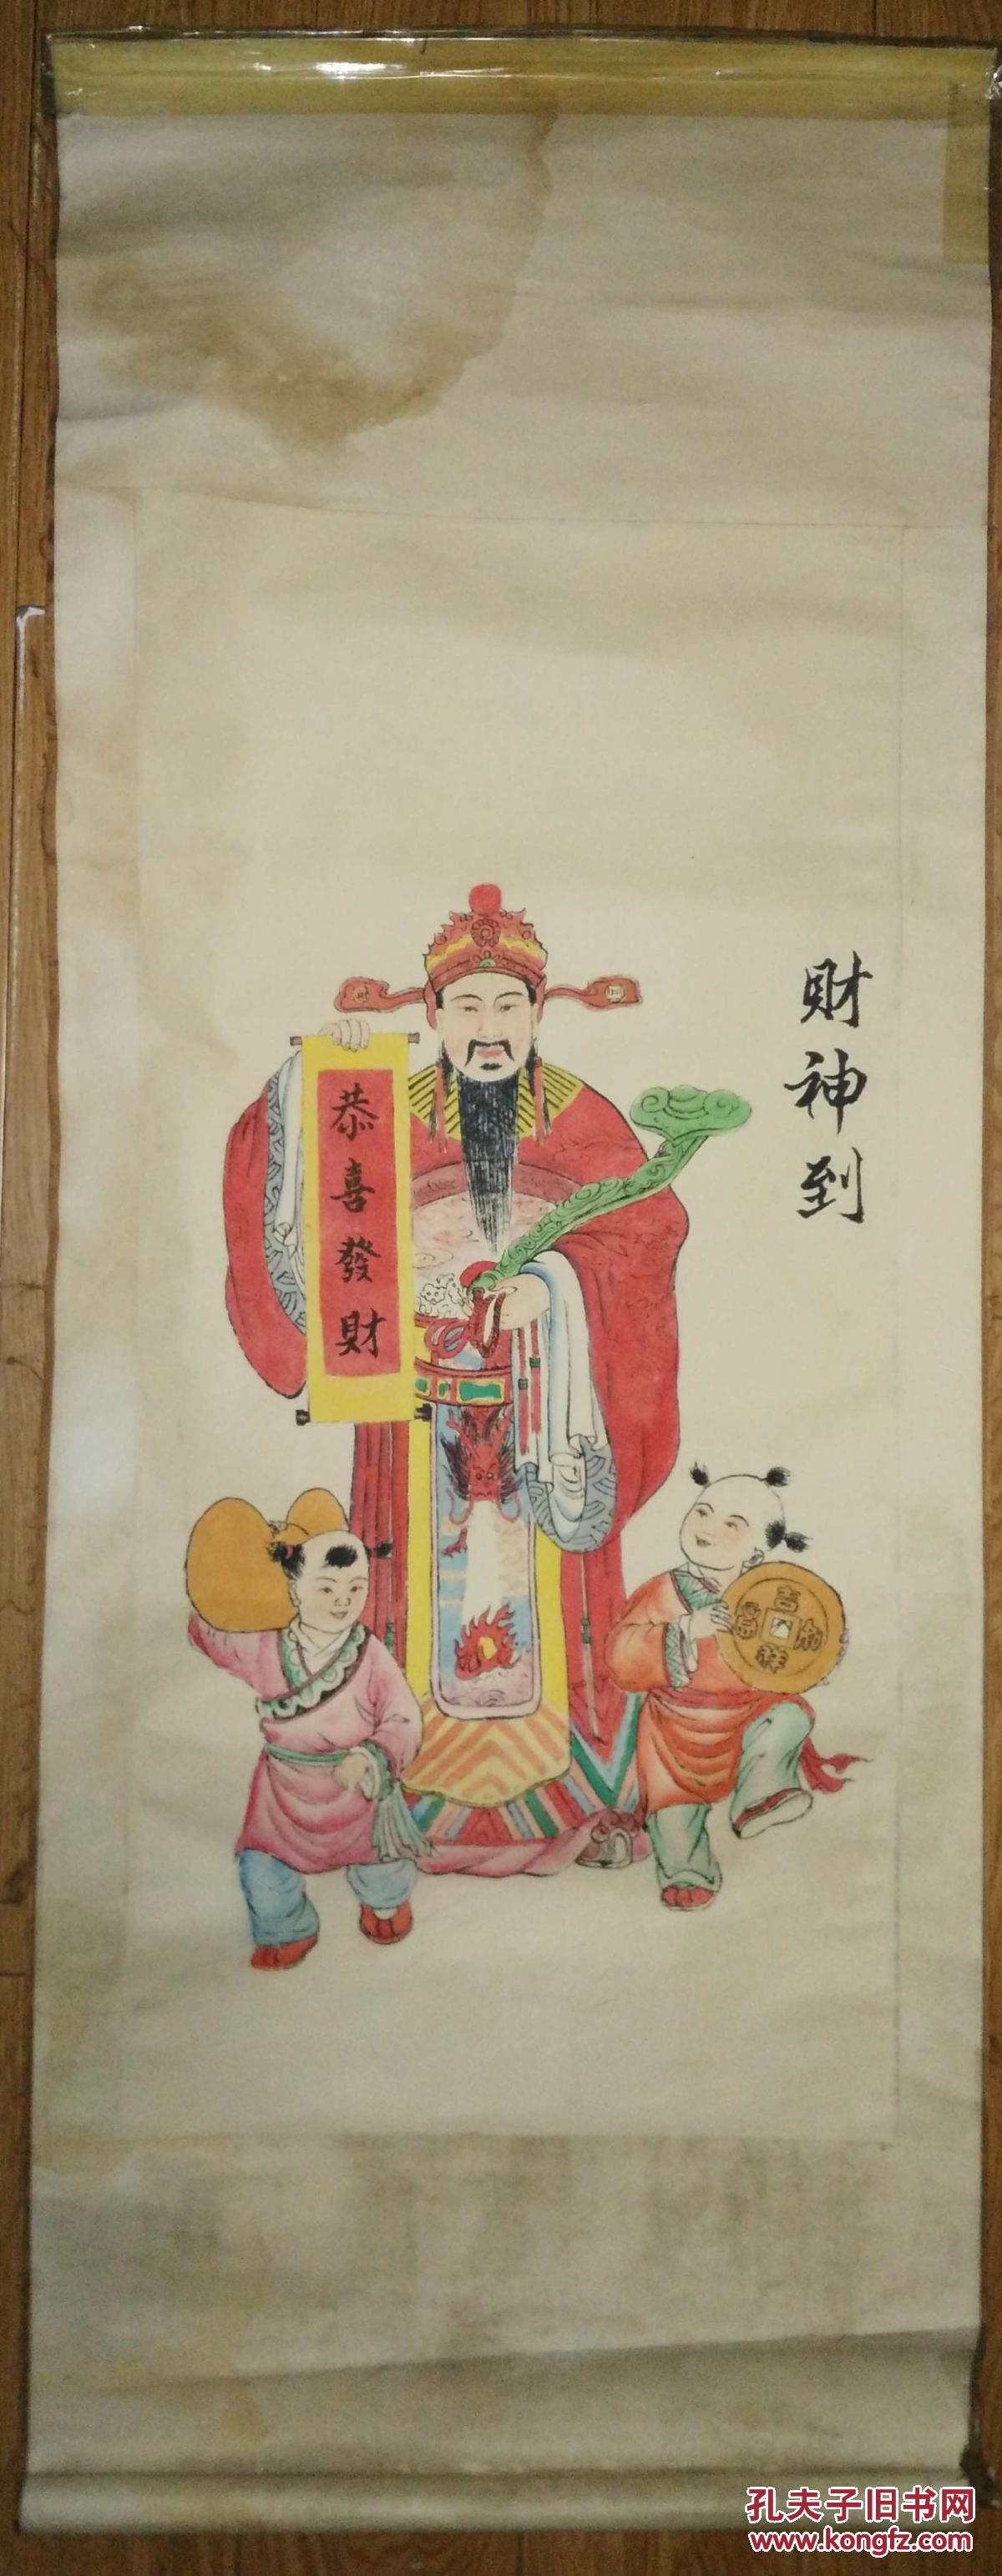 財神到
恭喜發財
吉祥如意
孔夫子旧书网
www.kongfz.com